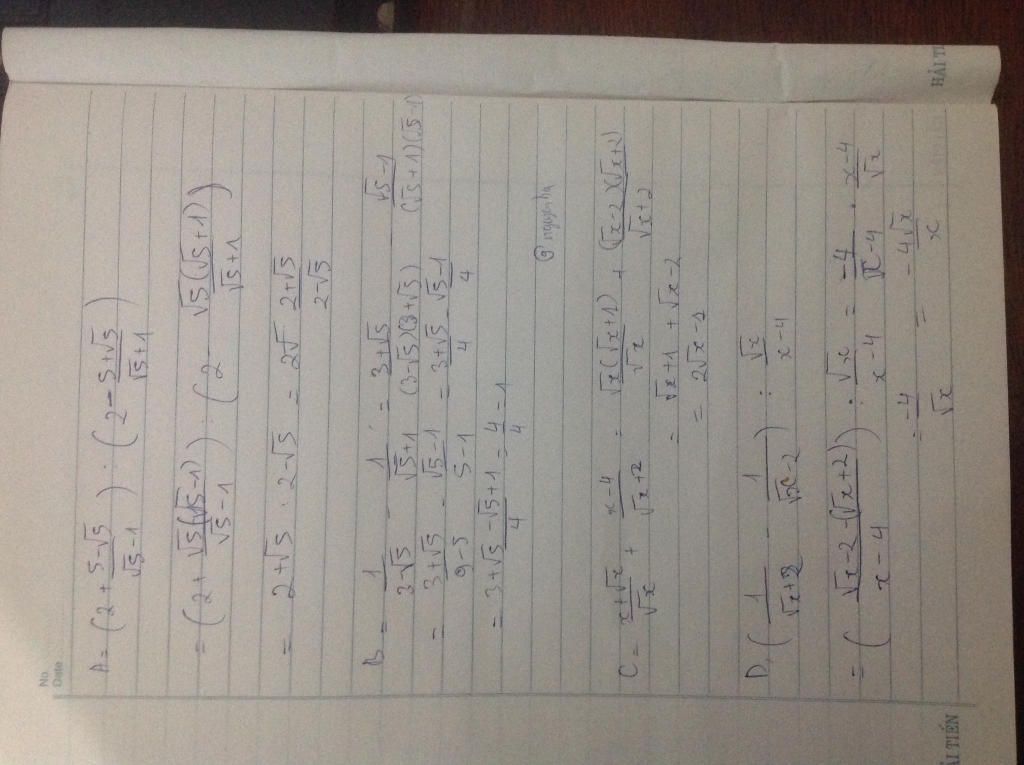 No.
Date
A = (2 + (5-√5)/(√5-1)) : (2 - (5+√5)/(√5+1))
= (2 + √5(√5-1)/(√5-1)) : (2 √5(√5+1)/(√5+1))
= 2+√5 : 2-√5 = 2√ (2+√5)/(2-√5)
B = 1/(3-√5) - 1/(√5+1) = (3+√5)/((3-√5)(3+√5)) (√5-1)/((√5+1)(√5-1))
= (3+√5)/(9-5) - (√5-1)/(5-1) = (3+√5)/4 - (√5-1)/4
= (3+√5-√5+1)/4 = 4/4 = 1
@ nguyenha
C = (x+√x)/√x + (x-4)/(√x+2) = √x(√x+1)/√x + (√x-2)(√x+2)/(√x+2)
= √x+1 + √x-2
= 2√x-1
D, (1/(√x+2) - 1/(√x-2)) : √x/(x-4)
= ((√x-2-(√x+2))/(x-4)) : √x/(x-4) = -4/(x-4) . (x-4)/√x
= -4/√x = -4√x/x
HẢI TIẾN